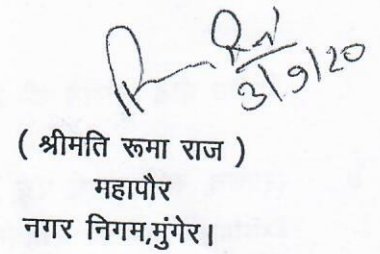 3/9/20
( श्रीमति रूमा राज )
महापौर
नगर निगम,मुंगेर।